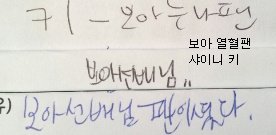 키 - 보아누나팬
보아 열혈팬
샤이니 키
보아선배님,,
유) 보아선배님 팬이였다.